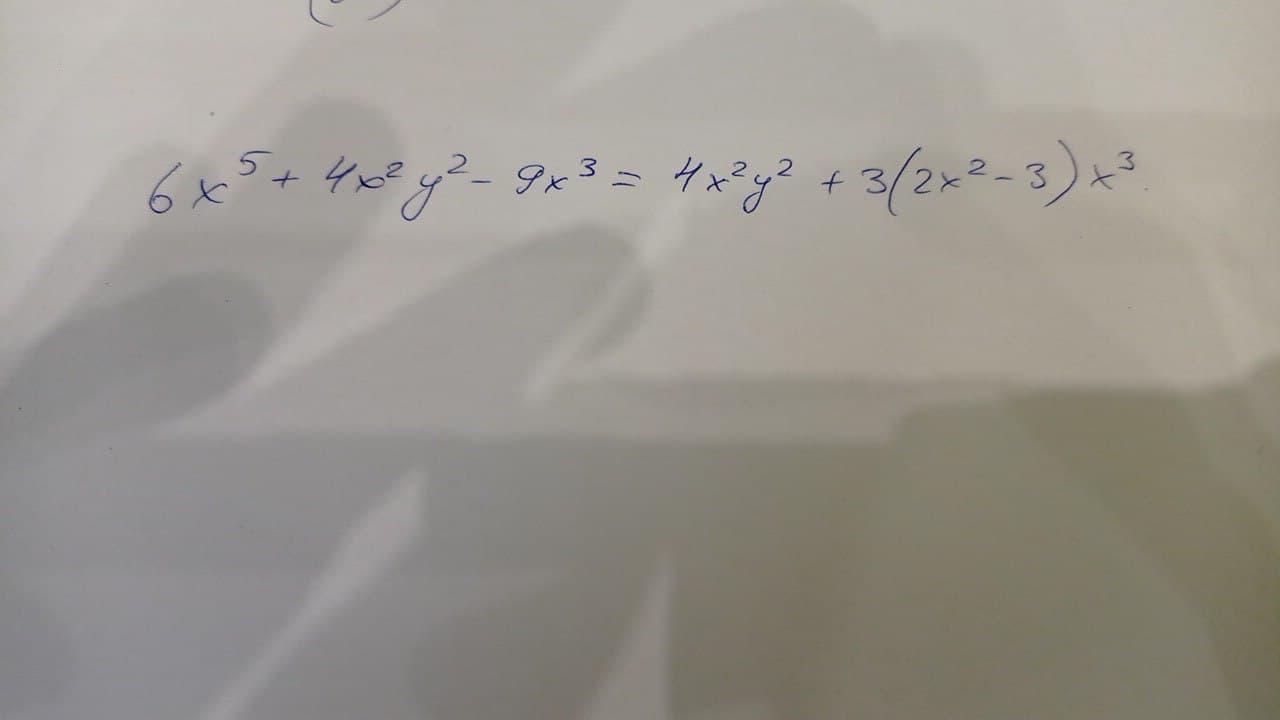 6x⁵ + 4x² y² - 9x³ = 4x²y² + 3(2x² - 3)x³